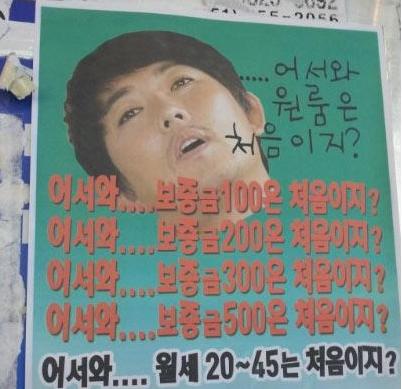 .....어서와
원룸은
처음이지?
어서와....보증금100은 처음이지?
어서와....보증금200은 처음이지?
어서와....보증금300은 처음이지?
어서와....보증금500은 처음이지?
어서와.... 월세 20~45는 처음이지?